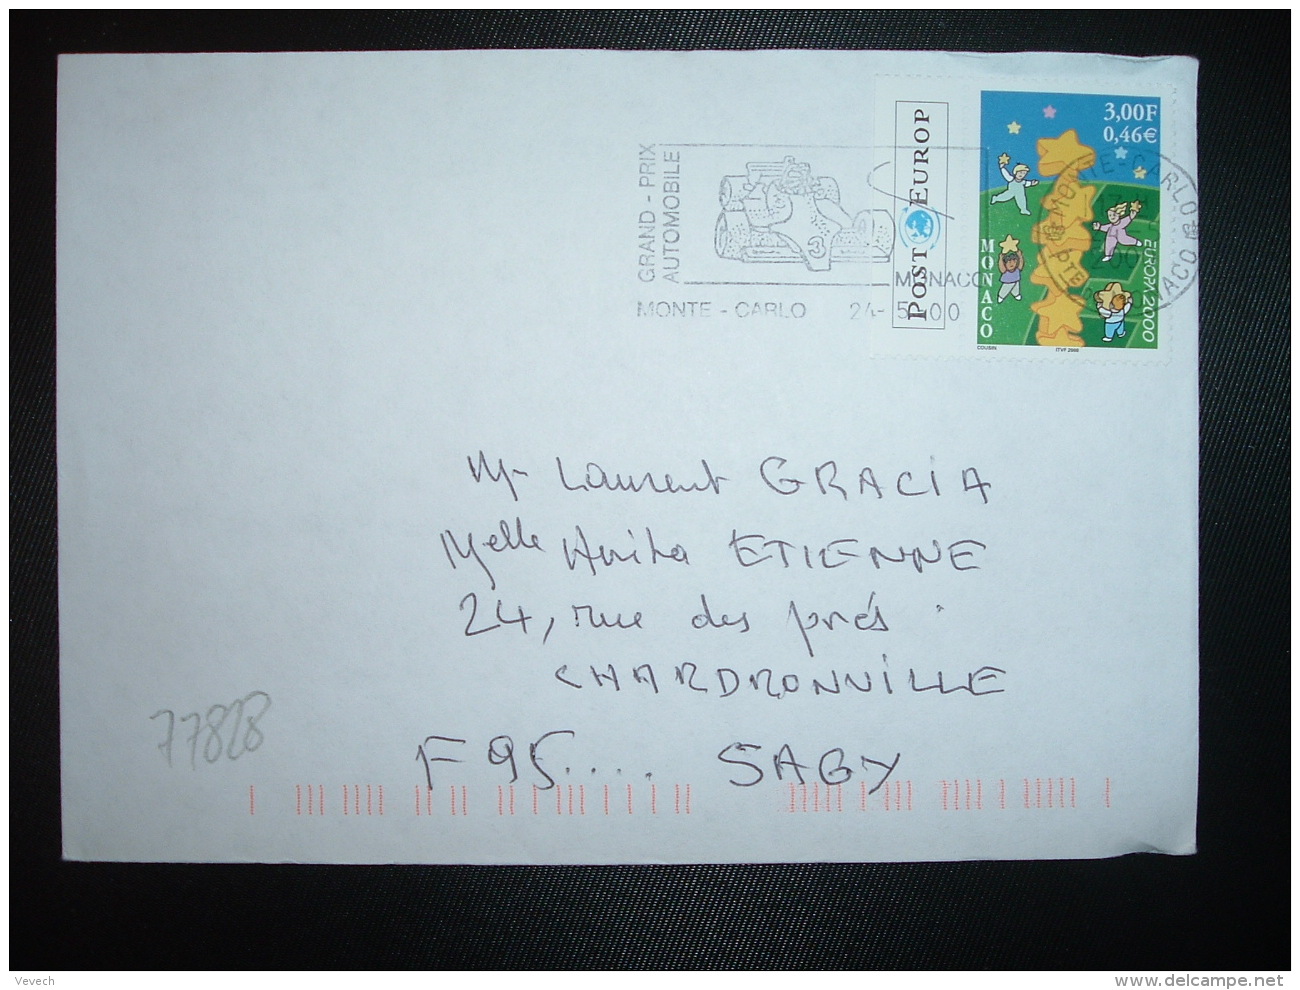 3,00F
0,46€
POST EUROP
MONACO
EUROPA 2000
COUSIN
ITVF 2000
GRAND-PRIX
AUTOMOBILE
3
MONACO
MONTE-CARLO 24-5-00
MONTE-CARLO
MONACO
Mr Laurent GRACIA
Melle Anita ETIENNE
24, rue des prés
CHARDRONVILLE
F 95.... SAGY
77828
Vevech
www.delcampe.net